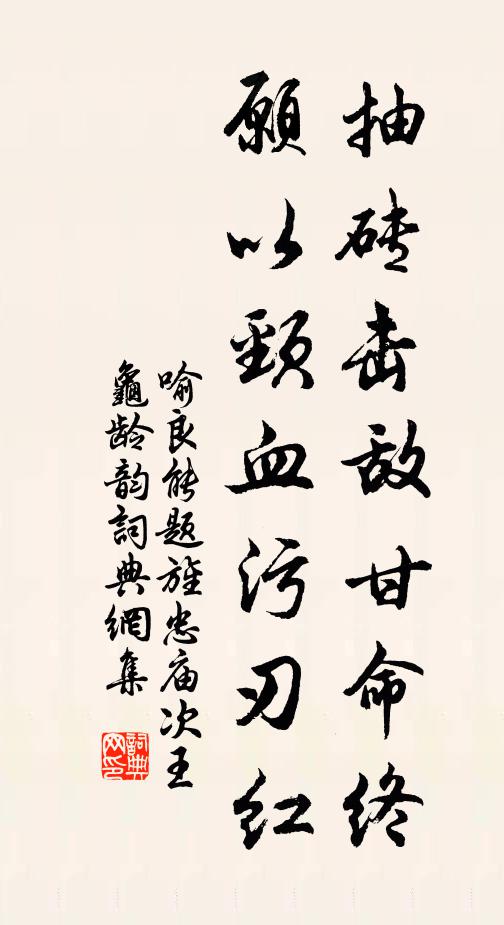 抽砖击敌甘命终
願以頸血污刃红
喻良能题旌忠庙次王
龜龄韵詞典網集
詞典
网印